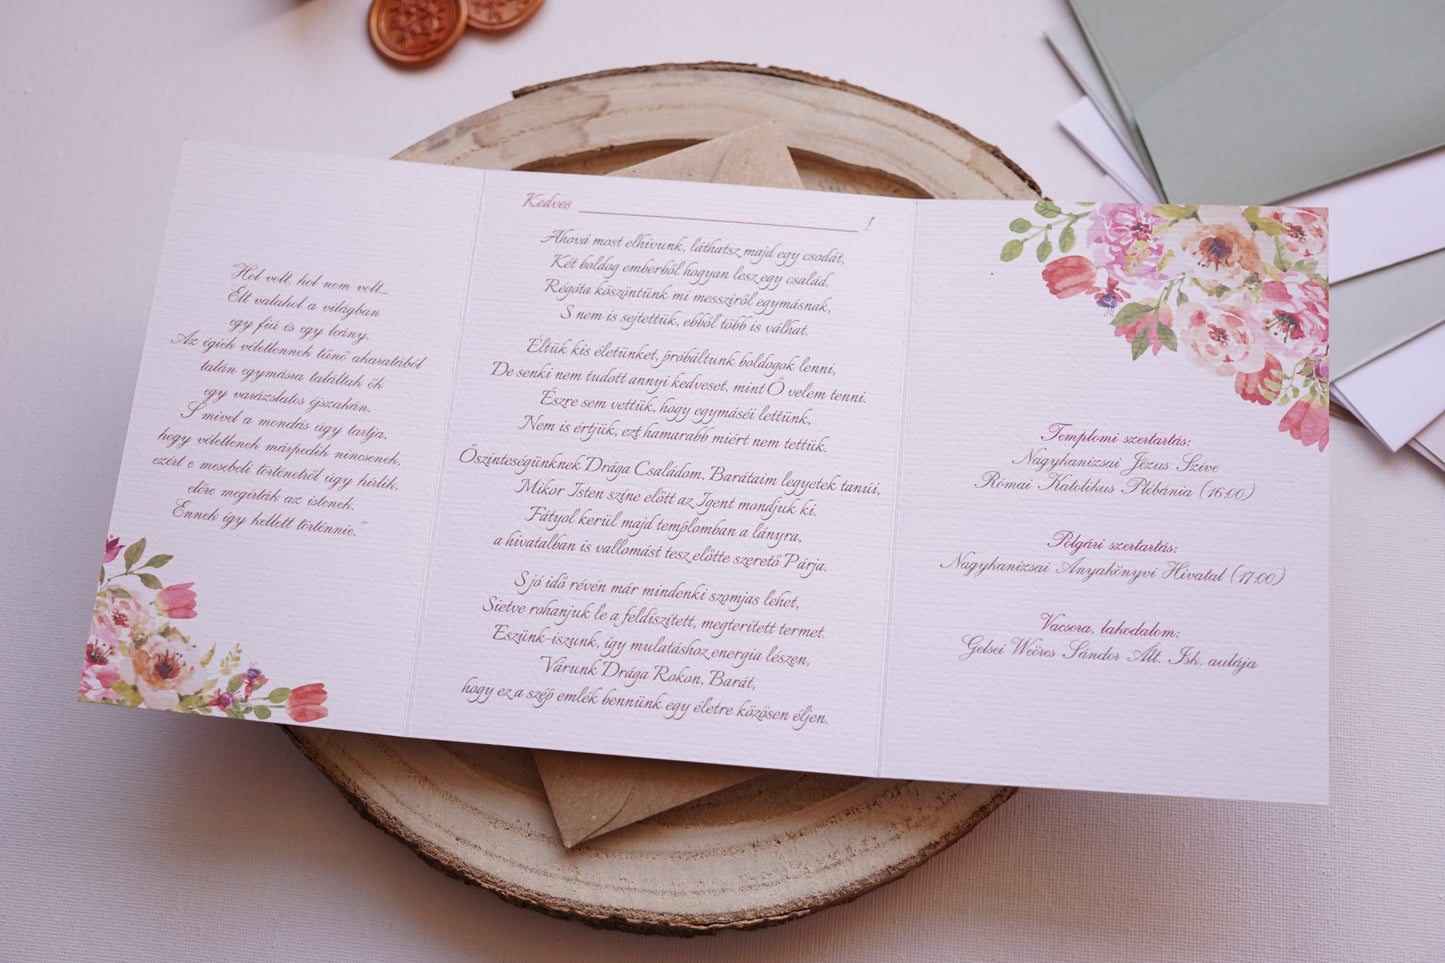 Hol volt, hol nem volt...
Élt valahol a világban
egy fiú és egy leány.
Az égiek véletlennek tűnő akaratából
talán egymásra találtak ők
egy varázslatos éjszakán.
S mivel a mondás úgy tartja,
hogy véletlenek márpedig nincsenek,
ezért e mesebeli történetről úgy hírlik,
előre megírták az istenek.
Ennek így kellett történnie."
Kedves ____________________!
Ahová most elhívunk, láthatsz majd egy csodát,
Két boldog emberből hogyan lesz egy család.
Régóta köszöntünk mi messziről egymásnak,
S nem is sejtettük, ebből több is válhat.
Éltük kis életünket, próbáltunk boldogok lenni,
De senki nem tudott annyi kedveset, mint Ő velem tenni.
Észre sem vettük, hogy egymáséi lettünk,
Nem is értjük, ezt hamarabb miért nem tettük.
Őszinteségünknek Drága Családom, Barátaim legyetek tanúi,
Mikor Isten színe előtt az Igent mondjuk ki.
Fátyol kerül majd templomban a lányra,
a hivatalban is vallomást tesz előtte szerető Párja.
S jó idő révén már mindenki szomjas lehet,
Sietve rohanjuk le a feldíszített, megterített termet.
Eszünk-iszunk, így mulatáshoz energia lészen,
Várunk Drága Rokon, Barát,
hogy ez a szép emlék bennünk egy életre közösen éljen.
Templomi szertartás:
Nagykanizsai Jézus Szíve
Római Katolikus Plébánia (16:00)
Polgári szertartás:
Nagykanizsai Anyakönyvi Hivatal (17:00)
Vacsora, lakodalom:
Gelsei Weöres Sándor Ált. Isk. aulája